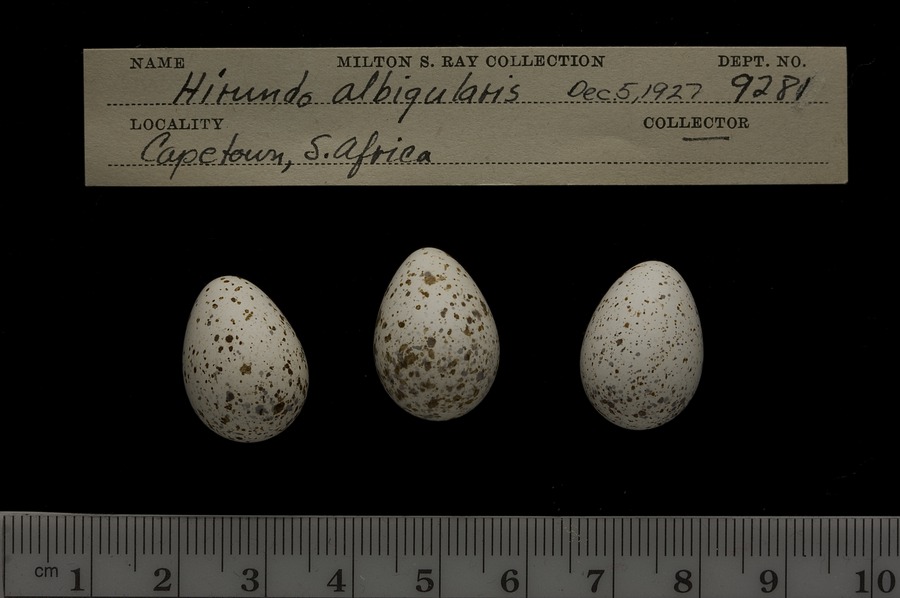 NAME MILTON S. RAY COLLECTION DEPT. NO.
Hirundo albigularis Dec. 5, 1927 9281
LOCALITY COLLECTOR
Capetown, S. Africa
cm 1 2 3 4 5 6 7 8 9 10